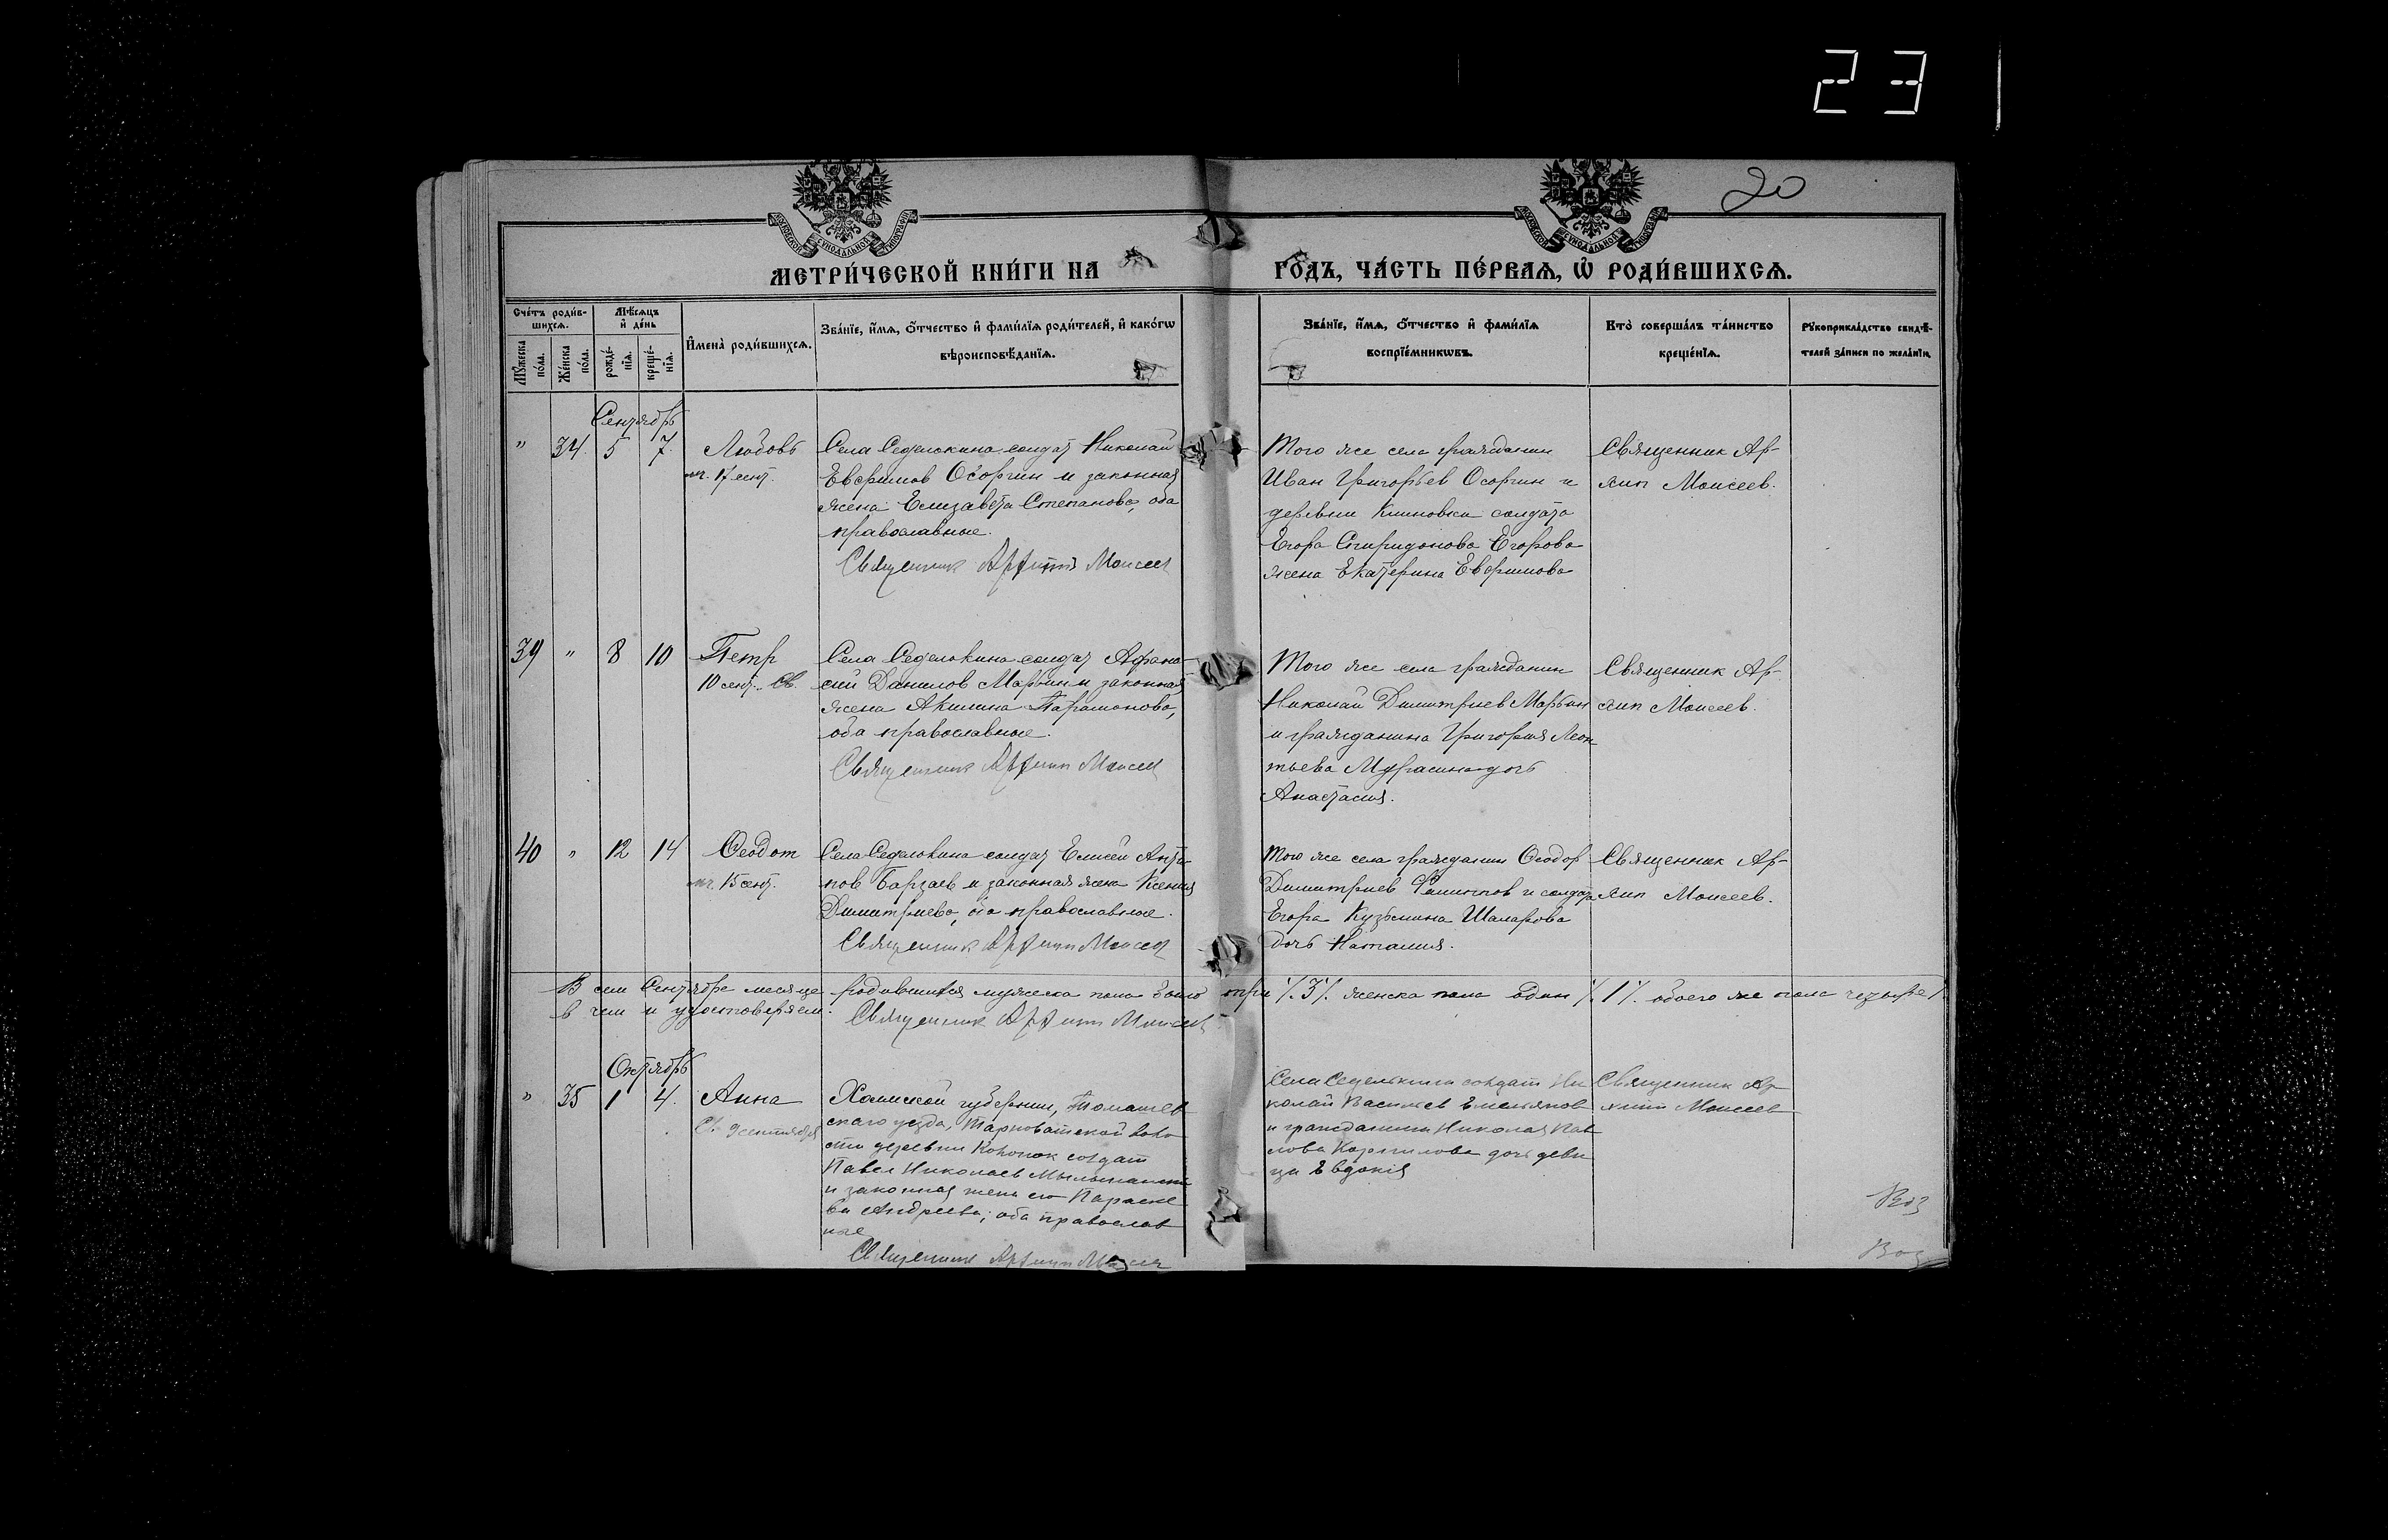 23
20
МОСКОВСКОЙ СѴНОДАЛЬНОЙ ТИПОГРАФІИ
МОСКОВСКОЙ СѴНОДАЛЬНОЙ ТИПОГРАФІИ
МЕТРИ́ЧЕСКОЙ КНИ́ГИ НА
ГОДЪ, ЧА́СТЬ ПЕ́РВАѦ, Ѡ҆ РОДИ́ВШИХСѦ.
Сче́тъ роди́в-
шихсѧ.
Мѣ́сѧцъ
и҆ де́нь
Мꙋ́жеска по́ла.
Же́нска по́ла.
рожде́-
нїѧ.
креще́-
нїѧ.
И҆мена̀ роди́вшихсѧ.
Зва́нїе, и҆́мѧ, ѻ҆́тчество и҆ фами́лїѧ роди́телей, и҆ како́гѡ
вѣроисповѣ́данїѧ.
Зва́нїе, и҆́мѧ, ѻ҆́тчество и҆ фами́лїѧ
воспрїе́мникѡвъ.
Кто̀ соверша́лъ та́инство
креще́нїѧ.
Рꙋкоприкла́дство свидѣ́-
телей за́писи по жела́нїю.
Сентябрь
" 34. 5 7. Любовь
мч. 17 сент.
Села Седелькина солдат Николай
Евфимов Осоргин и законная
жена Елизавета Степанова, оба
православные.
Священник Архипп Моисеев
Того же села гражданин
Иван Григорьев Осоргин и
деревни Климовки солдата
Егора Спиридонова Егорова
жена Екатерина Евфимова
Священник Ар-
хип Моисеев.
39 " 8 10 Петр
10 сент. Св.
Села Седелькина солдат Афана-
сий Данилов Марьин и законная
жена Акилина Парамонова,
оба православные.
Священник Архипп Моисеев
Того же села гражданин
Николай Димитриев Марьин
и гражданина Григория Леон
тьева дочь
Анастасия.
Священник Ар-
хип Моисеев.
40 " 12 14 Ѳеодот
мч. 15 сент.
Села Седелькина солдат Елисей Анти-
пов Барзаев и законная жена Ксения
Димитриева, оба православные.
Священник Архипп Моисеев
Того же села гражданин Ѳеодор
Димитриев Филиппов и солдата
Егора Кузьмина Шаларова
дочь Наталия.
Священник Ар-
хип Моисеев.
В сем Сентябре месяце родившихся мужеска пола было три /.3/. женска пола один /.1/. обоего же пола четыре /.
в чем и удостоверяем. Священник Архипп Моисеев
Октябрь
" 35 1 4. Анна
Св. 9 сентября
Холмской губернии, Томашев
скаго уезда, Тарноватской воло
сти деревни солдат
Павел Николаев
и законная жена его Параске
ва Андреева; оба православ
ные
Священник Архипп Моисеев
Села Седелькина солдат Ни
колай Васильев Емельянов
и гражданина Николая Пав
лова Корнилова дочь деви
ца Евдокия
Священник Ар
хипп Моисеев
Воз
Воз